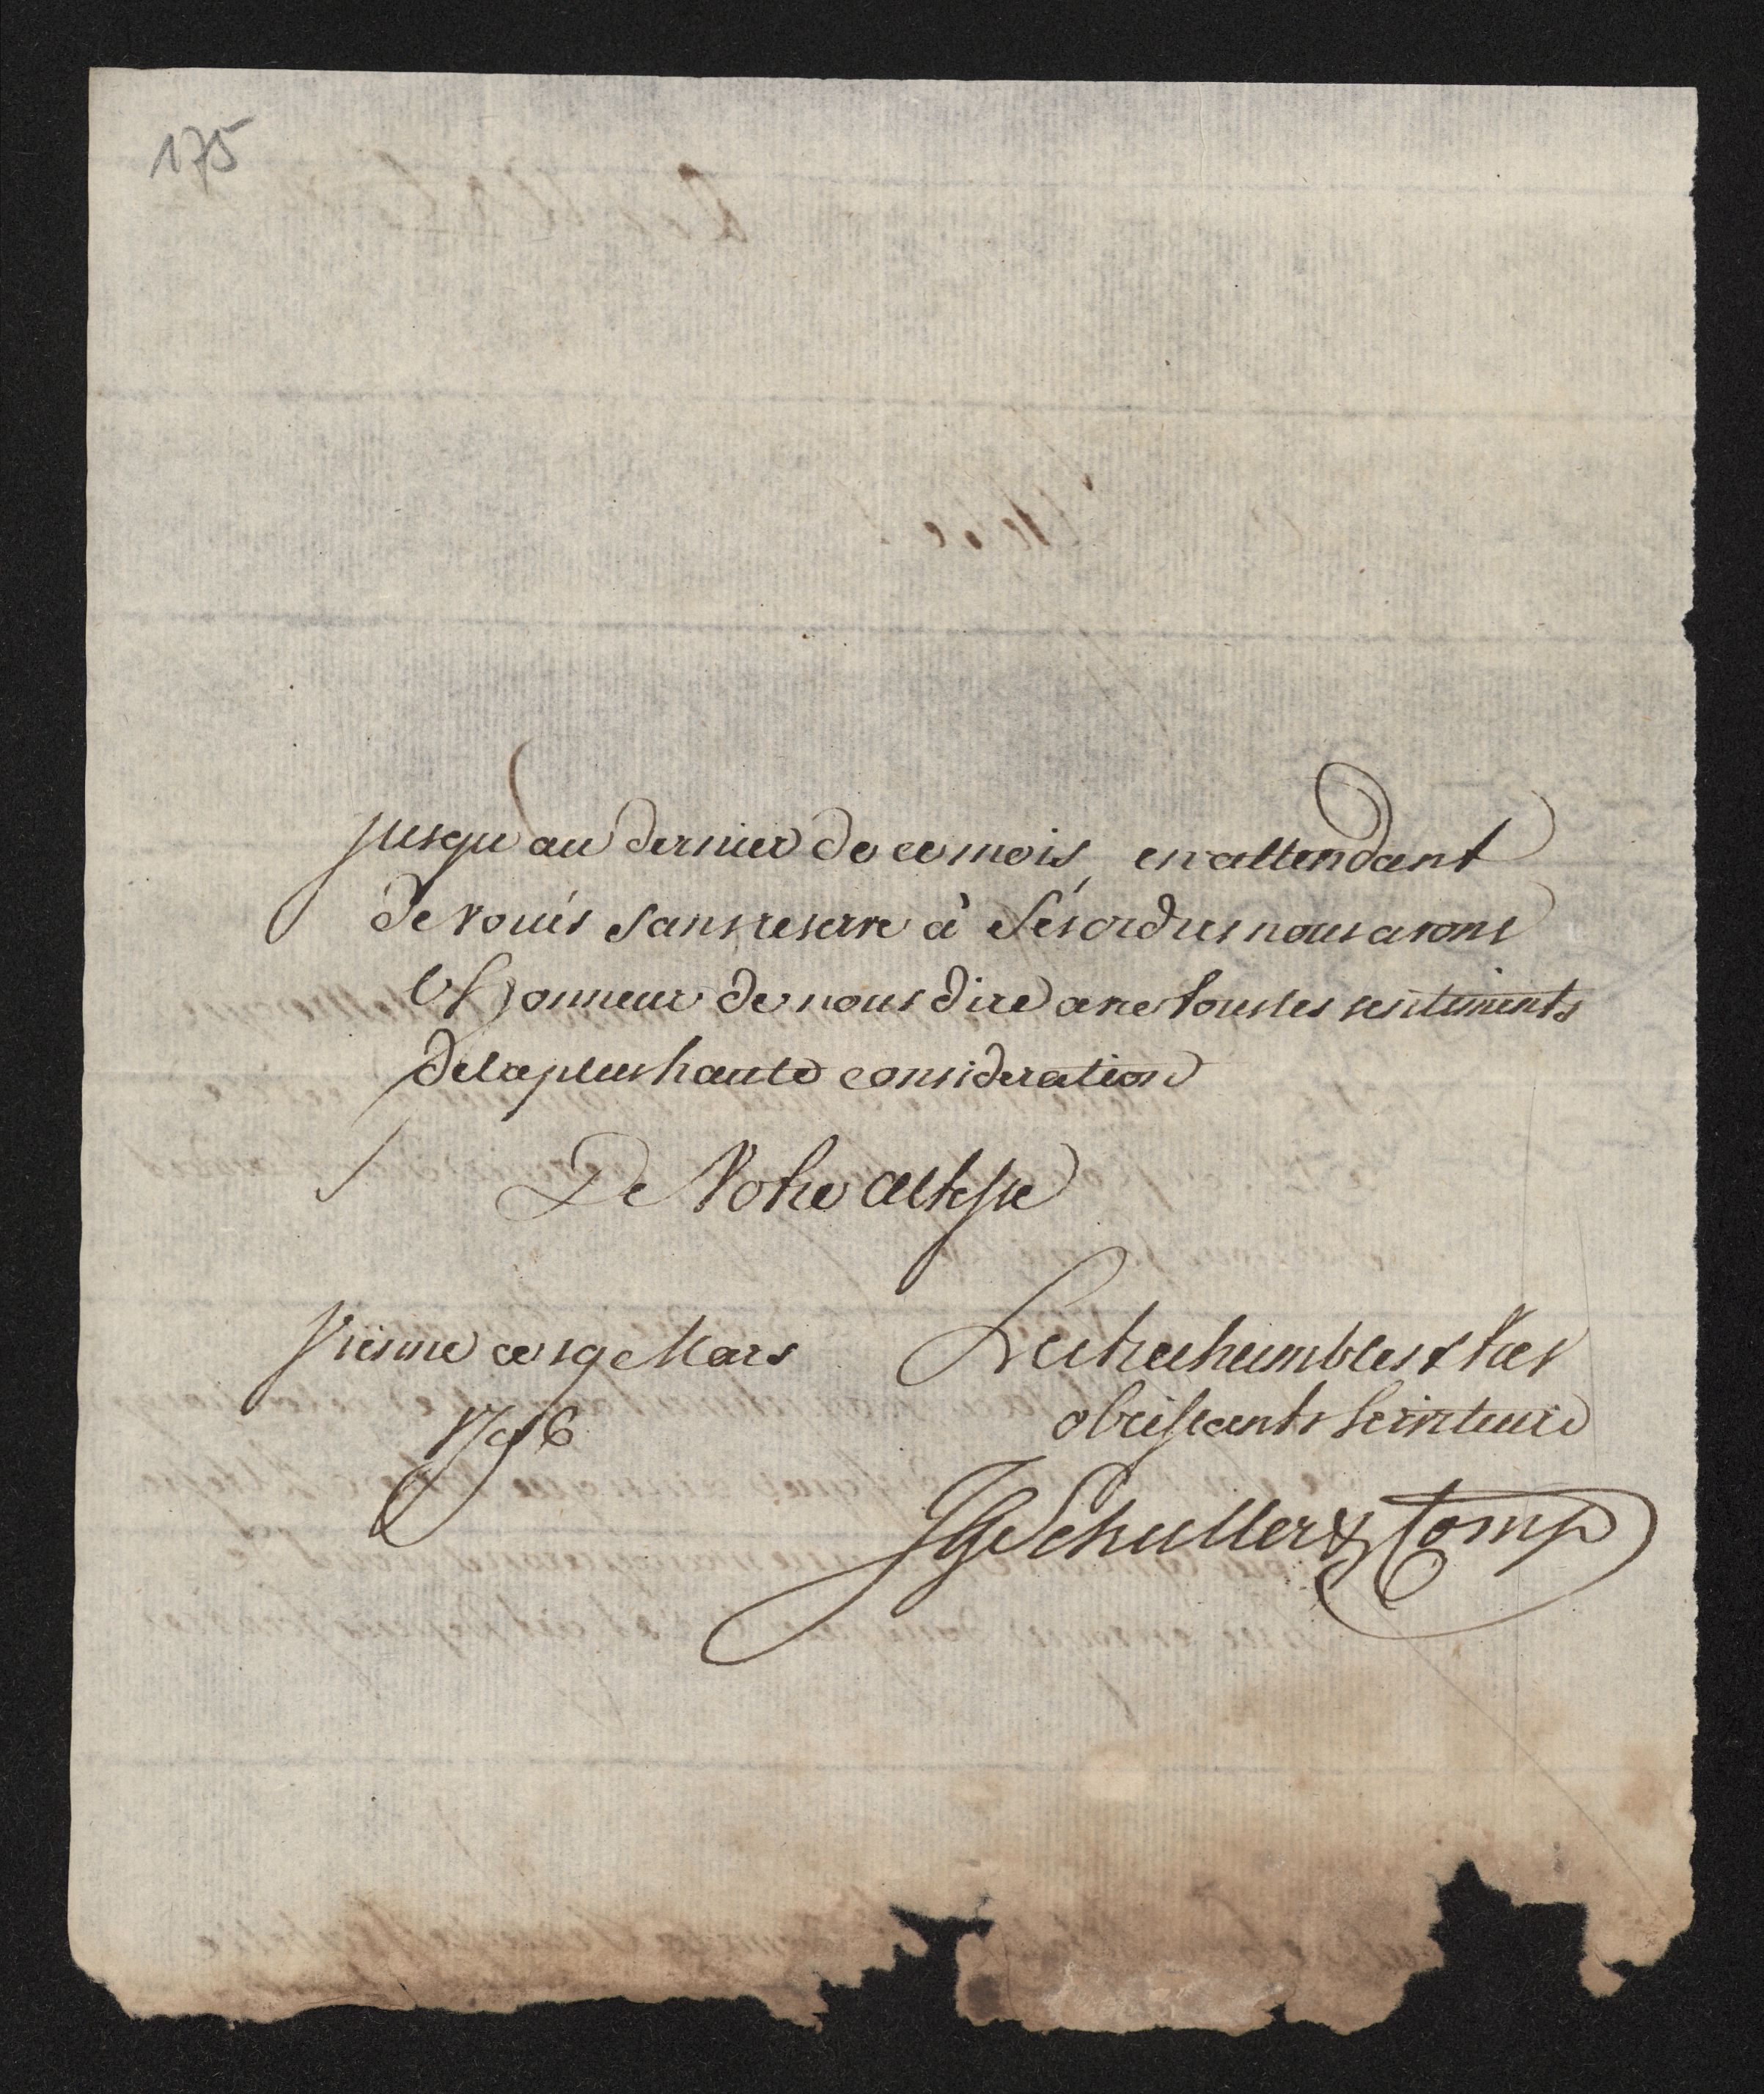 175
jusqu'au dernier de ce mois, en attendant
devoués sans reserve à Ses ordres nous avons
l'honneur de nous dire avec tous les sentiments
de la plus haute consideration
De Votre Altesse
Vienne ce 19 Mars
1796
Les tres humbles & tres
obeissants Serviteurs
JG Schuller & Comp